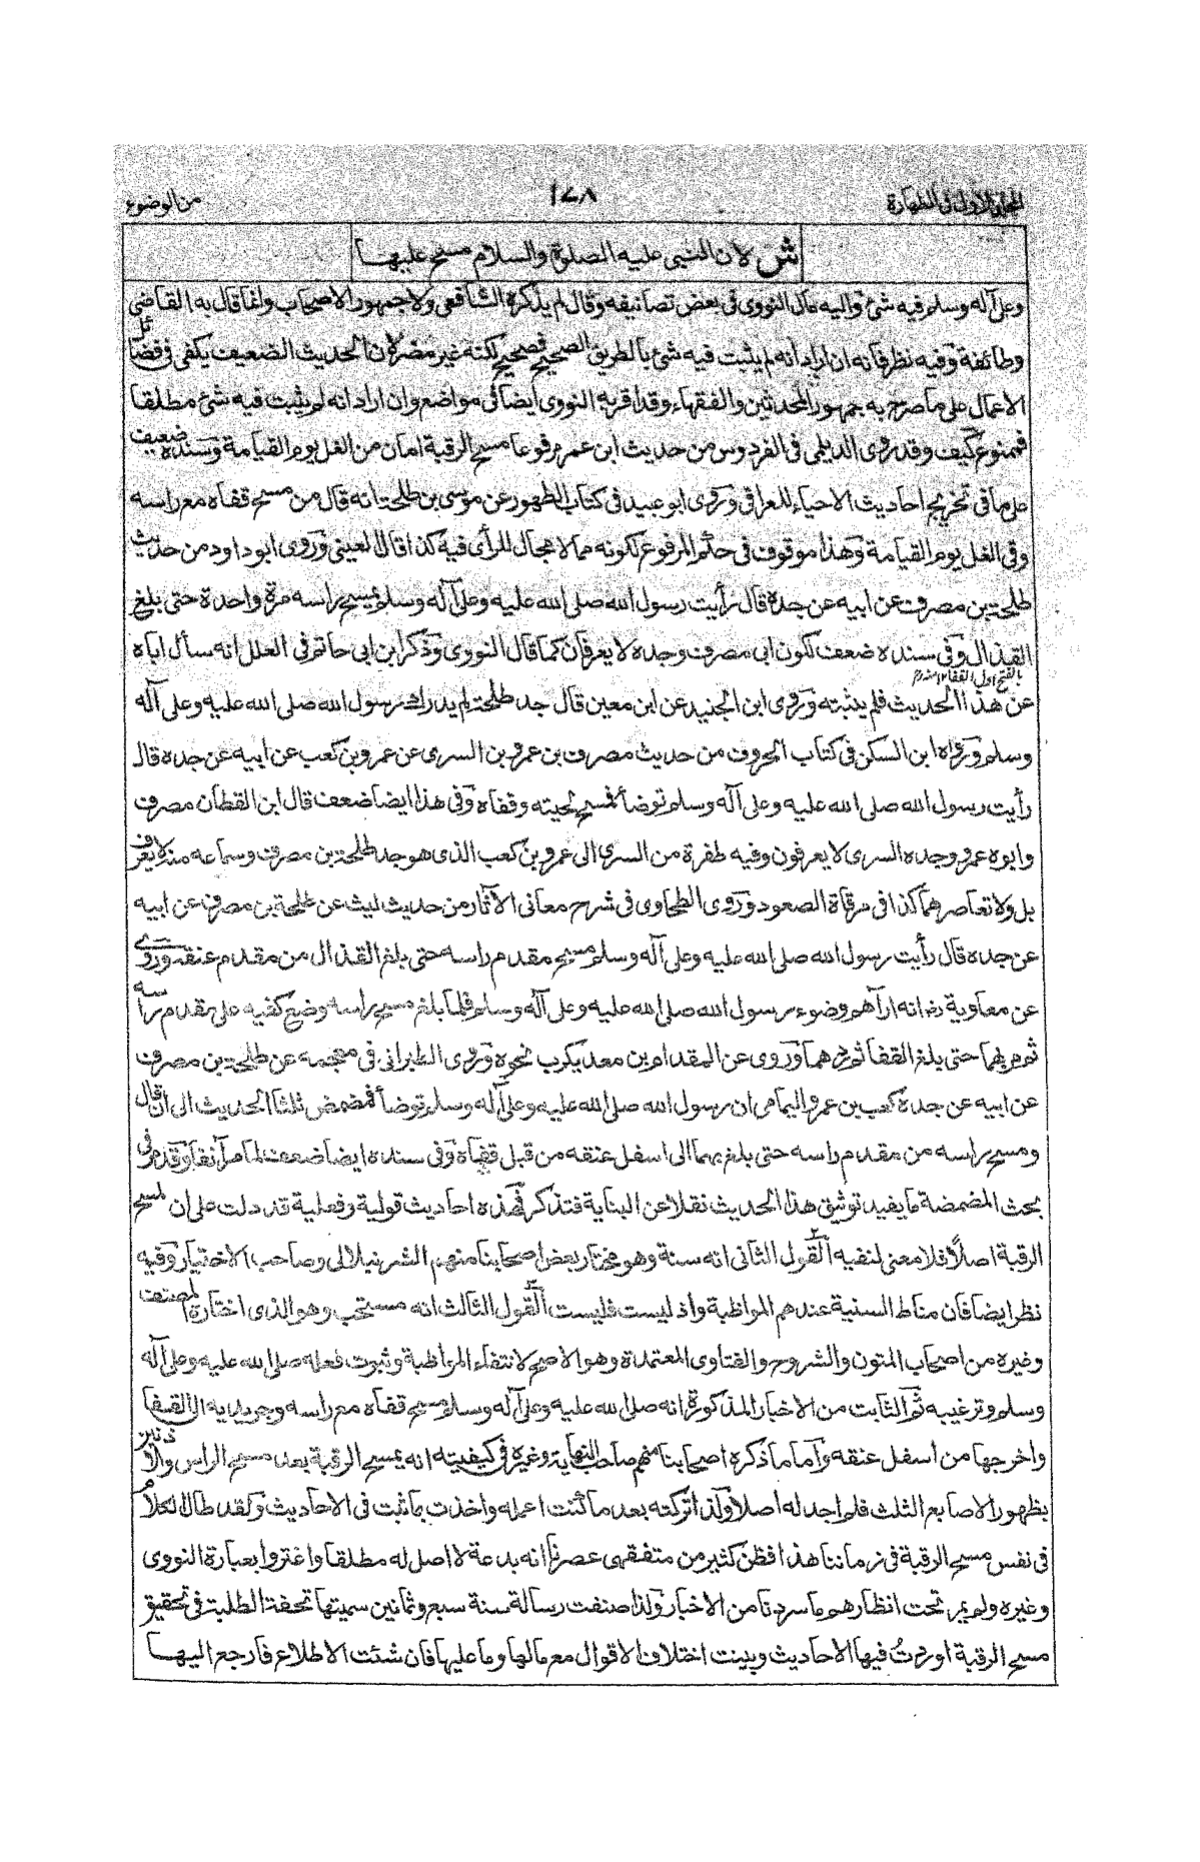 الجلد الاول فى الطهارة
١٧٨
من الوضوء
ش لان النبى عليه الصلوة والسلام مسح عليها
وعلى آله وسلم فيه شئ واليه مال النووى فى بعض تصانيفه وقال لم يذكره الشافعى ولا جمهور الاصحاب وانما قال به القاضى
وطائفة وفيه نظر فانه ان اراد انه لم يثبت فيه شئ بالطريق الصحيح فصحيح لكنه غير مضر لان الحديث الضعيف يكفى فى فضائل
الاعمال على ما صرح به جمهور المحدثين والفقهاء وقد اقر به النووى ايضا فى مواضع وان اراد انه لم يثبت فيه شئ مطلقا
فممنوع كيف وقد روى الديلمى فى الفردوس من حديث ابن عمر مرفوعا مسح الرقبة امان من الغل يوم القيامة وسنده ضعيف
على ما فى تخريج احاديث الاحياء للعراقى وروى ابو عبيد فى كتاب الطهور عن موسى بن طلحة انه قال من مسح قفاه مع راسه
وقى الغل يوم القيامة وهذا موقوف فى حكم المرفوع لكونه مما لا مجال للرأى فيه كذا قال العينى وروى ابو داود من حديث
طلحة بن مصرف عن ابيه عن جده قال رأيت رسول الله صلى الله عليه وعلى آله وسلم يمسح راسه مرة واحدة حتى بلغ
القذال وفى سنده ضعف لكون ابى مصرف وجده لا يعرفان كما قال النووى وذكر ابن ابى حاتم فى العلل انه سأل اباه
بالفتح اول القفا ١٢ منه
عن هذا الحديث فلم يثبته وروى ابن الجنيد عن ابن معين قال جد طلحة لم يدرك رسول الله صلى الله عليه وعلى آله
وسلم ورواه ابن السكن فى كتاب الحروف من حديث مصرف بن عمرو بن السرى عن عمرو بن كعب عن ابيه عن جده قال
رأيت رسول الله صلى الله عليه وعلى آله وسلم توضأ فمسح لحيته وقفاه وفى هذا ايضا ضعف قال ابن القطان مصرف
وابوه عمرو وجده السرى لا يعرفون وفيه طفرة من السرى الى عمرو بن كعب الذى هو جد طلحة بن مصرف وسماعه منه لا يعرف
بل ولا تعاصرهما كذا فى مرقاة الصعود وروى الطحاوى فى شرح معانى الآثار من حديث ليث عن طلحة بن مصرف عن ابيه
عن جده قال رأيت رسول الله صلى الله عليه وعلى آله وسلم مسح مقدم راسه حتى بلغ القذال من مقدم عنقه وروى
عن معاوية رض انه اراهم وضوء رسول الله صلى الله عليه وعلى آله وسلم فلما بلغ مسح راسه وضع كفيه على مقدم راسه
ثم مر بهما حتى بلغ القفا ثم ردهما وروى عن المقدام بن معديكرب نحوه وروى الطبرانى فى معجمه عن طلحة بن مصرف
عن ابيه عن جده كعب بن عمرو اليمامى ان رسول الله صلى الله عليه وعلى آله وسلم توضأ فمضمض ثلثا الحديث الى ان قال
ومسح راسه من مقدم راسه حتى بلغ بهما الى اسفل عنقه من قبل قفاه وفى سنده ايضا ضعف لما مر آنفا وقد مر فى
بحث المضمضة ما يفيد توثيق هذا الحديث نقلا عن البناية فتذكر فهذه احاديث قولية وفعلية قد دلت على ان لمسح
الرقبة اصلًا فلا معنى لنفيه القول الثانى انه سنة وهو مختار بعض اصحابنا منهم الشرنبلالى وصاحب الاختيار وفيه
نظر ايضا فان مناط السنية عندهم المواظبة واذ ليست فليست القول الثالث انه مستحب وهو الذى اختاره المصنف
وغيره من اصحاب المتون والشروح والفتاوى المعتمدة وهو الاصح لانتفاء المواظبة وثبوت فعله صلى الله عليه وعلى آله
وسلم وترغيبه ثم الثابت من الاخبار المذكورة انه صلى الله عليه وعلى آله وسلم مسح قفاه مع راسه وجر يديه الى القفا
واخرجها من اسفل عنقه واما ما ذكره اصحابنا منهم صاحب النهاية وغيره فى كيفيته انه يمسح الرقبة بعد مسح الراس والاذنين
بظهور الاصابع الثلث فلم اجد له اصلا ولذا تركته بعد ما كنت اعمله واخذت بما ثبت فى الاحاديث ولقد طال الكلام
فى نفس مسح الرقبة فى زماننا هذا فظن كثير من متفقهى عصرنا انه بدعة لا اصل له مطلقا واغتروا بعبارة النووى
وغيره ولم يمر تحت انظارهم ما سردنا من الاخبار ولذا صنفت رسالة سنة سبع وثمانين سميتها تحفة الطلبة فى تحقيق
مسح الرقبة اوردتُ فيها الاحاديث وبينت اختلاف الاقوال مع مالها وما عليها فان شئت الاطلاع فارجع اليها